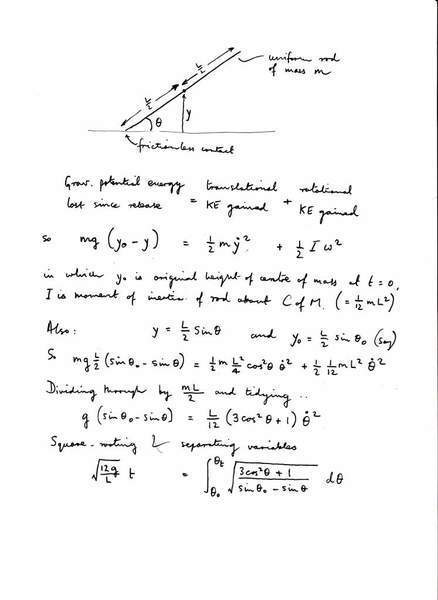 L/2
L/2
uniform rod
of mass m
θ
y
frictionless contact
Grav. potential energy translational rotational
lost since release = KE gained + KE gained
so mg (y₀ - y) = ½ m ẏ² + ½ I ω²
in which y₀ is original height of centre of mass at t = 0,
I is moment of inertia of rod about C of M. (= 1/12 mL²)
Also: y = L/2 sin θ and y₀ = L/2 sin θ₀ (say)
So mg L/2 (sin θ₀ - sin θ) = ½ m L²/4 cos²θ θ̇² + ½ 1/12 mL² θ̇²
Dividing through by mL/2 and tidying ..
g (sin θ₀ - sin θ) = L/12 (3cos²θ + 1) θ̇²
Square-rooting & separating variables
√(12g/L) t = ∫_θ₀^θt √((3cos²θ + 1)/(sin θ₀ - sin θ)) dθ